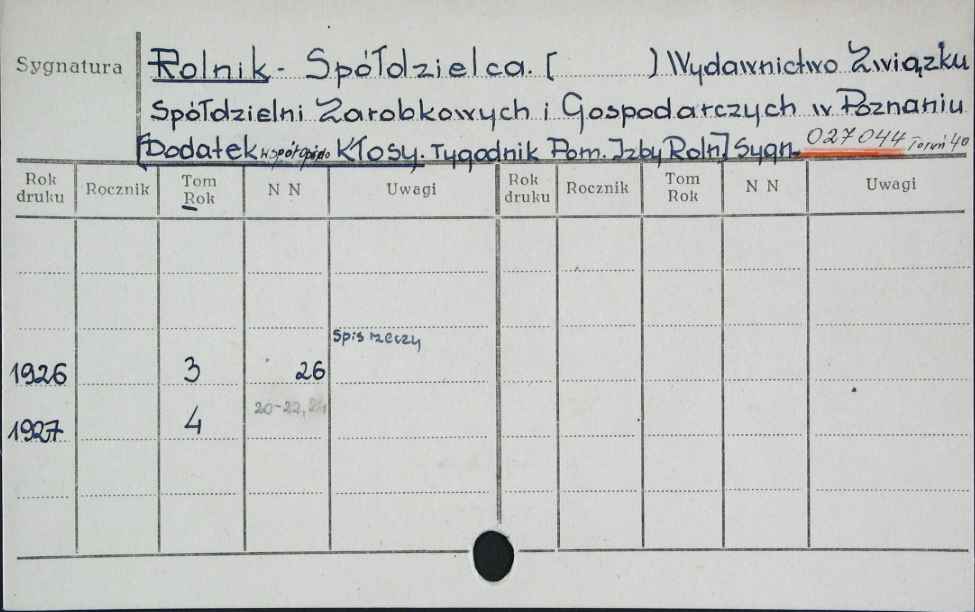 Sygnatura
Rolnik - Spółdzielca. [ ) Wydawnictwo Związku
Spółdzielni Zarobkowych i Gospodarczych w Poznaniu
[Dodatek Kłosy. Tygodnik Pom. Izby Roln] Sygn. 027044 Toruń 40
Rok druku Rocznik Tom Rok N N Uwagi Rok druku Rocznik Tom Rok N N Uwagi
Spis rzeczy
1926 3 26
1927 4 20-22,